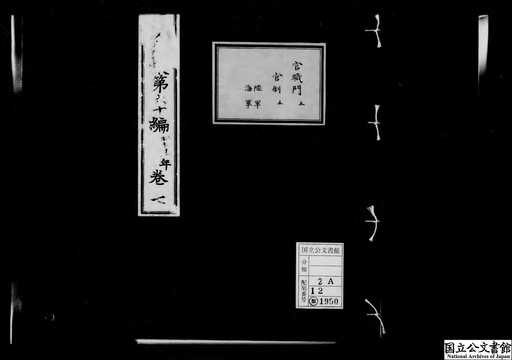 官職門 五
官制 五
陸軍
海軍
第六十編
年
巻七
国立公文書館
分類
配架番号
2A
12
1950
国立公文書館
National Archives of Japan